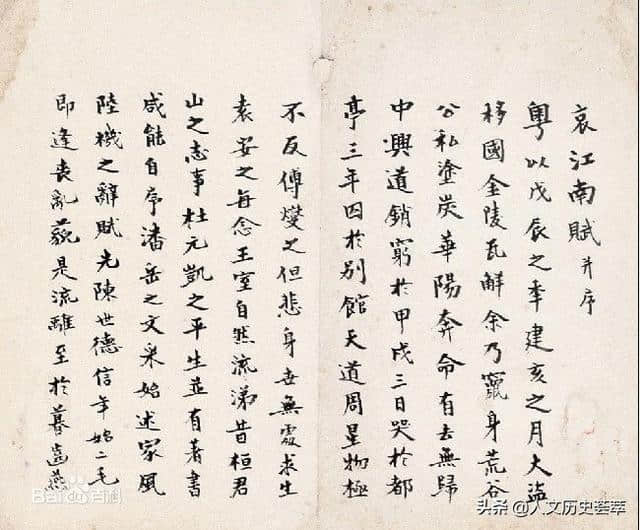 哀江南賦并序
粵以戊辰之年建亥之月大盜
移國金陵瓦解余乃竄身荒谷
公私塗炭華陽奔命有去無歸
中興道銷窮於甲戌三日哭於都
亭三年囚於別館天道周星物極
不反傅燮之但悲身世無處求生
袁安之每念王室自然流涕昔桓君
山之志事杜元凱之平生並有著書
咸能自序潘岳之文采始述家風
陸機之辭賦先陳世德信年始二毛
即逢喪亂藐是流離至於暮齒燕
Bai百科
头条 @人文历史荟萃